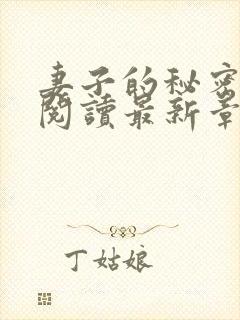 妻子的秘密
閱讀最新章
丁姑娘